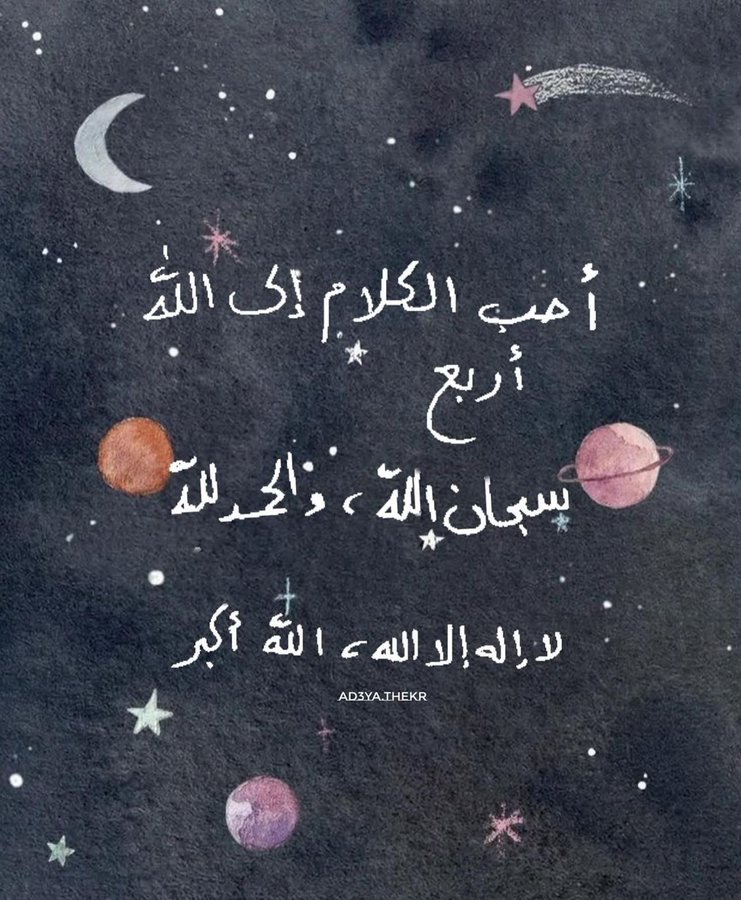 أحب الكلام إلى الله
أربع
سبحان الله، والحمد لله
لا إله إلا الله، الله أكبر
AD3YA.THEKR